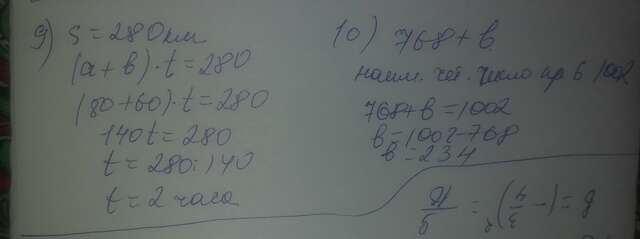 9) S = 280 км
(а + в) · t = 280
(80 + 60) · t = 280
140t = 280
t = 280 : 140
t = 2 часа
10) 768 + в
наим. чет. число пр 6 1002
768 + в = 1002
в = 1002 - 768
в = 234